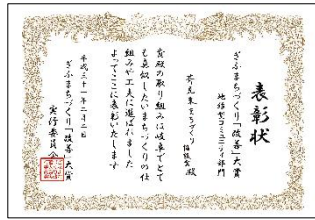 表彰状
ぎふまちづくり「改善」大賞
地域型コミュニティ部門
芥見東まちづくり協議会殿
貴殿の取り組みは岐阜でとて
も真似したいまちづくりの仕
組みや工夫に選ばれました
よってここに表彰いたします
平成三十一年二月二日
ぎふまちづくり「改善」大賞
実行委員会